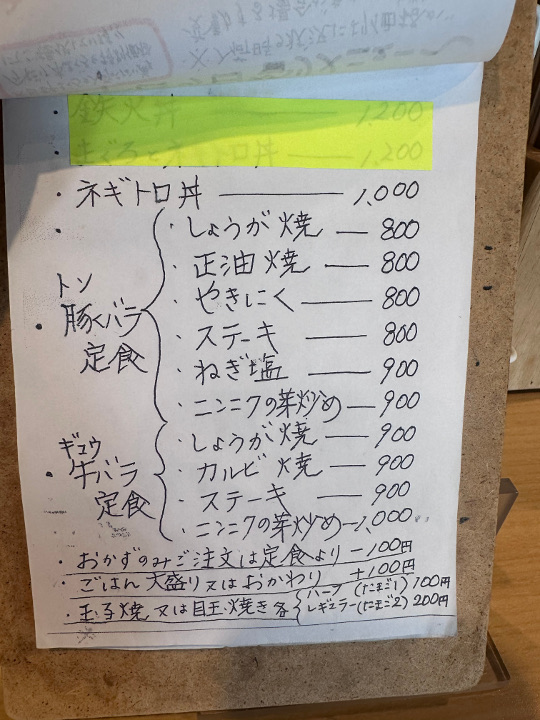 鉄火丼 1,200
まぐろとネギトロ丼 1,200
・ネギトロ丼 — 1,000
・豚バラ定食 トン
・しょうが焼 — 800
・正油焼 — 800
・やきにく — 800
・ステーキ — 800
・ねぎ塩 — 900
・ニンニクの芽炒め — 900
・牛バラ定食 ギュウ
・しょうが焼 — 900
・カルビ焼 — 900
・ステーキ — 900
・ニンニクの芽炒め — 1,000
・おかずのみご注文は定食より — -100円
・ごはん大盛り又はおかわり +100円
・玉子焼又は目玉焼き各 ハーフ(たまご1) 100円
レギュラー(たまご2) 200円